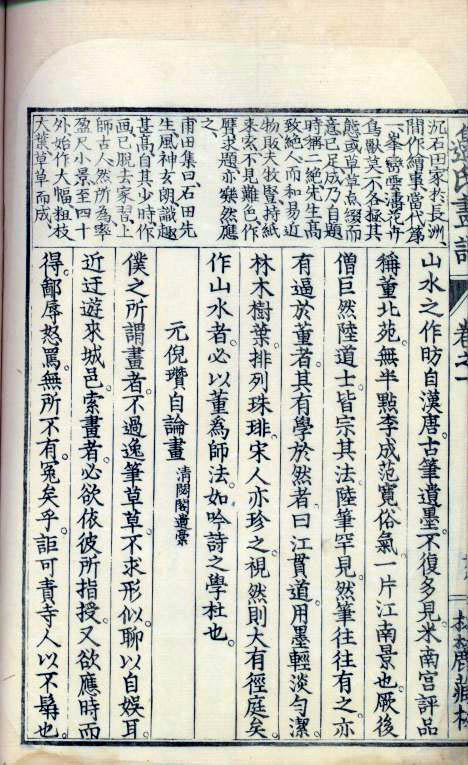 沉石田家於長洲
間作繪事當代第
一峯巒雲濤花卉
鳥獸莫不各極其
態或草草點綴而
意已足成乃自題
時稱二絕先生高
致絕人而和易近
物販夫牧豎持紙
來索不見難色作
贋求題亦樂然應
之
甫田集曰石田先
生風神玄朗識趣
甚高自其少時作
画已脫去家習上
師古人然所為率
盈尺小景至四十
外始作大幅粗枝
大葉草草而成
山水之作昉自漢唐古筆遺墨不復多見米南宮評品
稱董北苑無半點李成范寬俗氣一片江南景也厥後
僧巨然陸道士皆宗其法陸筆罕見然筆往往有之亦
有逼於董者其有學於然者曰江貫道用墨輕淡勻潔
林木樹葉排列珠琲宋人亦珍之視然則大有徑庭矣
作山水者必以董為師法如吟詩之學杜也
元倪瓚自論畫 清閟閣遺稾
僕之所謂畫者不過逸筆草草不求形似聊以自娛耳
近迂遊來城邑索畫者必欲依彼所指授又欲應時而
得鄙辱怒罵無所不有冤矣乎詎可責寺人以不髯也
卷之一